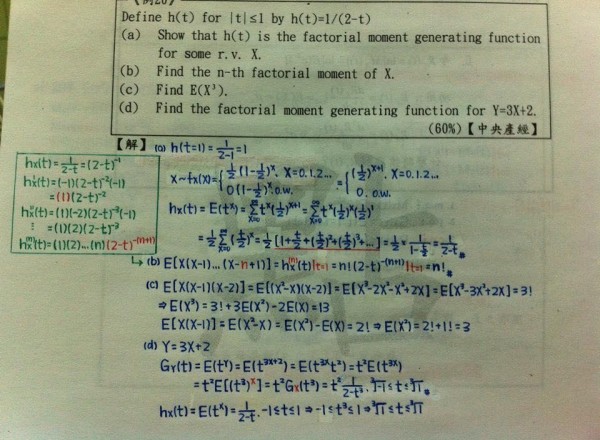 Define h(t) for |t|≤1 by h(t)=1/(2-t)
(a) Show that h(t) is the factorial moment generating function
for some r.v. X.
(b) Find the n-th factorial moment of X.
(c) Find E(X³).
(d) Find the factorial moment generating function for Y=3X+2.
(60%)【中央產經】
【解】(a) h(t=1)=1/(2-1)=1
X~fx(x)={½(1-½)^x, X=0.1.2... ={(½)^(x+1), X=0.1.2...
0(1-½), o.w. 0, o.w.
hx(t)=E(t^x)=Σ t^x(½)^(x+1)=Σ t^x(½)^x(½)^1
=½Σ(t/2)^x=½[1+t/2+(t/2)²+(t/2)³+...]=½×1/(1-t/2)=1/(2-t)#
hx(t)=1/(2-t)=(2-t)^-1
hx'(t)=(-1)(2-t)^-2(-1)
=(1)(2-t)^-2
hx''(t)=(1)(-2)(2-t)^-3(-1)
⋮ =(1)(2)(2-t)^-3
hx^(n)(t)=(1)(2)...(n)(2-t)^-(n+1)
↳(b) E[X(X-1)...(X-n+1)]=hx^(n)(t)|t=1=n!(2-t)^-(n+1)|t=1=n!#
(c) E[X(X-1)(X-2)]=E[(X²-X)(X-2)]=E[X³-2X²-X²+2X]=E[X³-3X²+2X]=3!
⇒E(X³)=3!+3E(X²)-2E(X)=13
E[X(X-1)]=E(X²-X)=E(X²)-E(X)=2!⇒E(X²)=2!+1!=3
(d) Y=3X+2
GY(t)=E(t^Y)=E(t^(3X+2))=E(t^3X t²)=t²E(t^3X)
=t²E[(t³)^X]=t²Gx(t³)=t² 1/(2-t³), ³√-1≤t≤³√1#
hx(t)=E(t^X)=1/(2-t), -1≤t≤1⇒-1≤t³≤1⇒³√-1≤t≤³√1